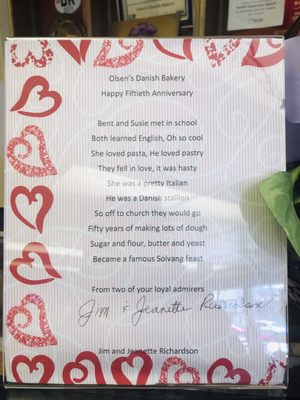 Olsen's Danish Bakery
Happy Fiftieth Anniversary
Bent and Susie met in school
Both learned English, Oh so cool
She loved pasta, He loved pastry
They fell in love, it was hasty
She was a pretty Italian
He was a Danish stallion
So off to church they would go
Fifty years of making lots of dough
Sugar and flour, butter and yeast
Became a famous Solvang feast
From two of your loyal admirers
Jim & Jeanette Richardson
Jim and Jeanette Richardson